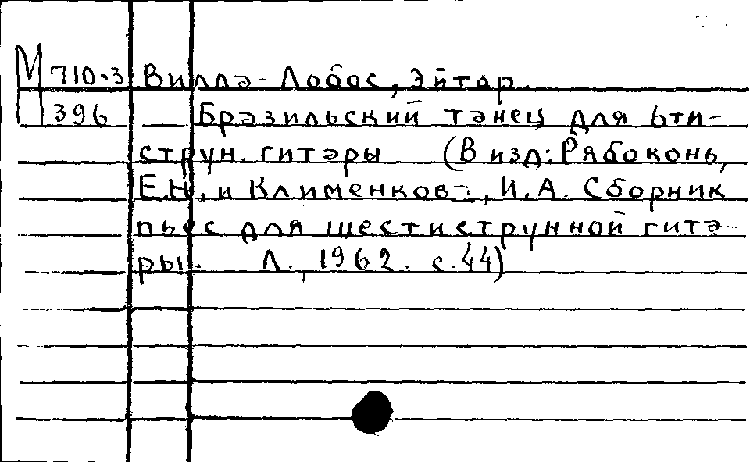 М 710-3 Вилла-Лобос, Эйтор.
396 Бразильский танец для 6ти-
струн. гитары (В изд: Рябоконь,
Е.Н. и Клименков, И.А. Сборник
пьес для шестиструнной гита-
ры. Л., 1962. с.44)